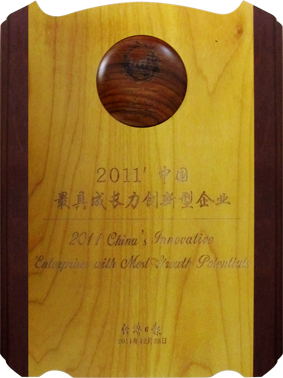 2011' 中国
最具成长力创新型企业
2011 China's Innovative
Enterprises with Most Growth Potentials
经济日报
2011年12月28日